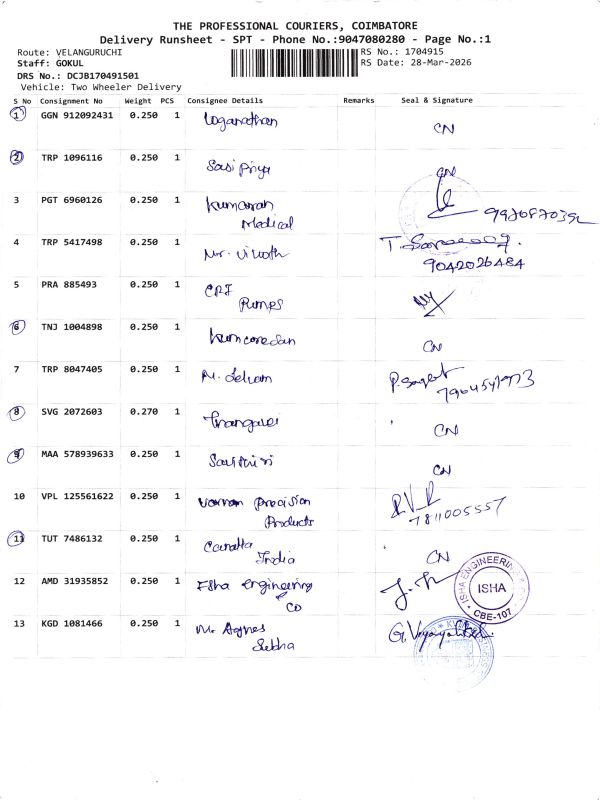 THE PROFESSIONAL COURIERS, COIMBATORE
Delivery Runsheet - SPT - Phone No.:9047080280 - Page No.:1
Route: VELANGURUCHI
RS No.: 1704915
Staff: GOKUL
RS Date: 28-Mar-2026
DRS No.: DCJB170491501
Vehicle: Two Wheeler Delivery
S No Consignment No Weight PCS Consignee Details Remarks Seal & Signature
1 GGN 912092431 0.250 1 Loganathan CN
2 TRP 1096116 0.250 1 Sasi priya CN
3 PGT 6960126 0.250 1 Kumaran
Medical
4 TRP 5417498 0.250 1 Mr. Vinoth
9042026484
5 PRA 885493 0.250 1 CRI
Pumps
6 TNJ 1004898 0.250 1 CN
7 TRP 8047405 0.250 1
8 SVG 2072603 0.270 1 CN
9 MAA 578939633 0.250 1 CN
10 VPL 125561622 0.250 1 Precision
Products
7811005557
11 TUT 7486132 0.250 1 CN
India
12 AMD 31935852 0.250 1 Isha Engineering
CO
ISHA ENGINEERING
ISHA
CBE-107
13 KGD 1081466 0.250 1 Mr. Agnes